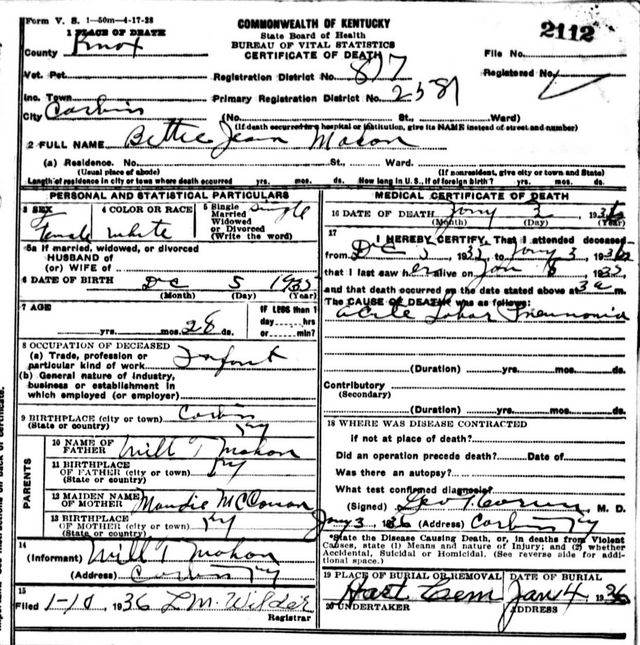 Form V. S. 1-50m-4-17-28
1 PLACE OF DEATH
County Knox
Vot. Pct.
Inc. Town
City Corbin
COMMONWEALTH OF KENTUCKY
State Board of Health
BUREAU OF VITAL STATISTICS
CERTIFICATE OF DEATH
Registration District No. 877
Primary Registration District No. 2581
2112
File No.
Registered No.
(No. St., Ward.
(If death occurred in a hospital or institution, give its NAME instead of street and number)
2 FULL NAME Bettie Jean Mahon
(a) Residence. No. St., Ward.
(Usual place of abode) (If nonresident, give city or town and State)
Length of residence in city or town where death occurred yrs. mos. ds. How long in U. S., if of foreign birth? yrs. mos. ds.
PERSONAL AND STATISTICAL PARTICULARS
3 SEX Female
4 COLOR OR RACE white
5 Single Married Widowed or Divorced (Write the word) Single
5a If married, widowed, or divorced
HUSBAND of
(or) WIFE of
6 DATE OF BIRTH Dec 5 1935
(Month) (Day) (Year)
7 AGE yrs. mos. 28 ds.
IF LESS than 1 day hrs or min?
8 OCCUPATION OF DECEASED
(a) Trade, profession or particular kind of work Infant
(b) General nature of industry, business or establishment in which employed (or employer)
9 BIRTHPLACE (city or town) Corbin
(State or country) Ky
PARENTS
10 NAME OF FATHER Will T Mahon
11 BIRTHPLACE OF FATHER (city or town) Ky
(State or country)
12 MAIDEN NAME OF MOTHER Maudie McCowan
13 BIRTHPLACE OF MOTHER (city or town) Ky
(State or country)
14 (Informant) Will T Mahon
(Address) Corbin Ky
15 Filed 1-10 1936 L.M. Wilder
Registrar
MEDICAL CERTIFICATE OF DEATH
16 DATE OF DEATH Jany 3 1936
(Month) (Day) (Year)
17 I HEREBY CERTIFY, That I attended deceased
from Dec 5 1935 to Jany 3 1936
that I last saw her alive on Jan
and that death occurred on the date stated above at 3 a m.
The CAUSE OF DEATH* was as follows:
Acute Lobar Pneumonia
(Duration) yrs. mos. ds.
Contributory
(Secondary)
(Duration) yrs. mos. ds.
18 WHERE WAS DISEASE CONTRACTED
if not at place of death?
Did an operation precede death? Date of
Was there an autopsy?
What test confirmed diagnosis?
(Signed) M. D.
Jany 3 1936 (Address) Corbin Ky
*State the Disease Causing Death, or, in deaths from Violent
Causes, state (1) Means and nature of Injury; and (2) whether
Accidental, Suicidal or Homicidal. (See reverse side for addi-
tional space.)
19 PLACE OF BURIAL OR REMOVAL DATE OF BURIAL
Hart Cem Jan 4 1936
20 UNDERTAKER ADDRESS